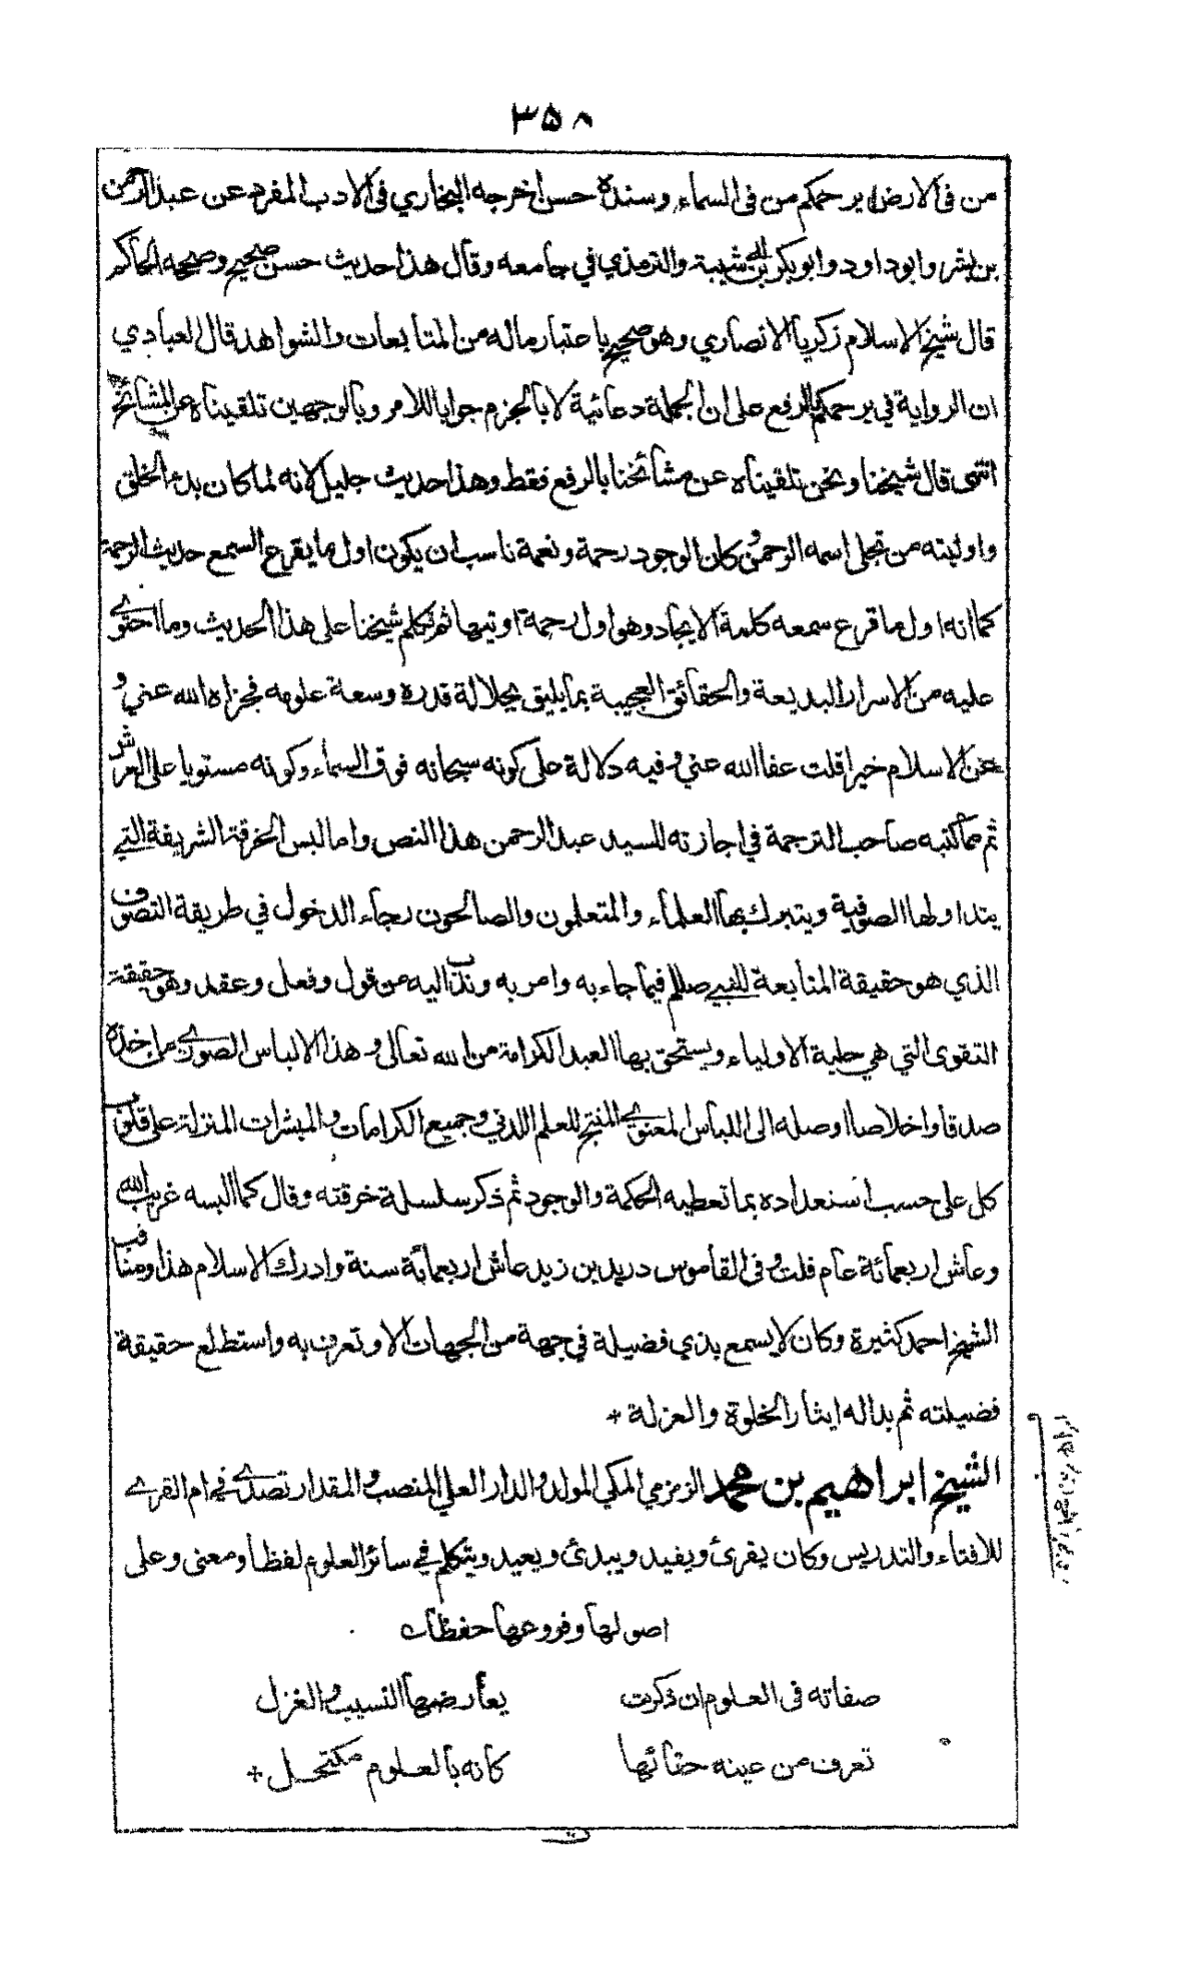 ٣٥٨
من فى الارض يرحمكم من فى السماء وسنده حسن اخرجه البخاري فى الادب المفرد عن عبد الرحمن
بن بشر وابوداود وابوبكر بن ابى شيبة والترمذي في جامعه وقال هذا حديث حسن صحيح وصححه الحاكم
قال شيخ الاسلام زكريا الانصاري وهو صحيح باعتبار ماله من المتابعات والشواهد قال العبادي
ان الرواية في يرحمكم بالرفع على ان الجملة دعائية لا بالجزم جوابا للامر وبالوجهين تلقيناه عن المشائخ
انتهى قال شيخنا ونحن تلقيناه عن مشائخنا بالرفع فقط وهذا حديث جليل لانه لما كان بدء الخلق
واوليته من تجلى اسمه الرحمن وكان الوجود رحمة ونعمة ناسب ان يكون اول ما يقرع السمع حديث الرحمة
كما انه اول ما قرع سمعه كلمة الايجاد وهو اول رحمة اوتيها ثم تكلم شيخنا على هذا الحديث وما احتوى
عليه من الاسرار البديعة والحقائق العجيبة بما يليق بجلالة قدره وسعة علومه فجزاه الله عني و
عن الاسلام خيرا قلت عفا الله عني وفيه دلالة على كونه سبحانه فوق السماء وكونه مستويا على العرش
ثم مما كتبه صاحب الترجمة في اجازته للسيد عبد الرحمن هذا النص واما لبس الخرقة الشريفة التي
يتداولها الصوفية ويتبرك بها العلماء والمتعلمون والصالحون رجاء الدخول في طريقة التصوف
الذي هو حقيقة المتابعة للنبي صللم فيما جاء به وامر به وندب اليه من قول وفعل وعقد وهو حقيقة
التقوى التي هي حلية الاولياء ويستحق بها العبد الكرامة من الله تعالى وهذا الالباس الصوري من اخذه
صدقا واخلاصا اوصله الى اللباس المعنوي المنتج للعلم اللدني وجميع الكرامات والمبشرات المنزلة على قلوب
كل على حسب استعداده بما تعطيه الحكمة والوجود ثم ذكر سلسلة خرقته وقال كما البسه غريب الله
وعاش اربعمائة عام قلت وفى القاموس دريد بن زيد عاش اربعمائة سنة وادرك الاسلام هذا ومناقب
الشيخ احمد كثيرة وكان لا يسمع بذي فضيلة في جهة من الجهات الا وتعرف به واستطلع حقيقة
فضيلته ثم بدا له ايثار الخلوة والعزلة +
الشيخ ابراهيم بن محمد الزمزمي المكي المولد والدار العلي المنصب والمقدار تصدى في ام القرى
للافتاء والتدريس وكان يقرئ ويفيد ويبدئ ويعيد ويتكلم في سائر العلوم لفظا ومعنى وعلى
اصولها وفروعها حفظا
صفاته فى العلوم ان ذكرت يعارضها النسيب والغزل
تعرف من عينه حقائقها كانه بالعلوم مكتحل +